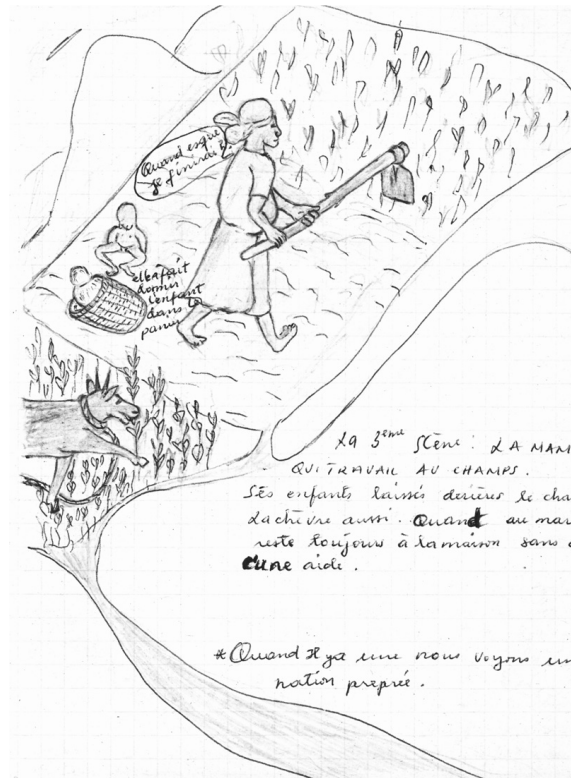 Quand esque
je finirai?
elle fait
dormir
l'enfant
dans le
panier
La 3ème Scène : LA MAM
QUI TRAVAIL AU CHAMPS.
Ses enfants laissés derières le cha
La chèvre aussi. Quand au mar
reste toujours à la maison sans
cune aide.
*Quand Il ya une nous voyons un
nation préprée.